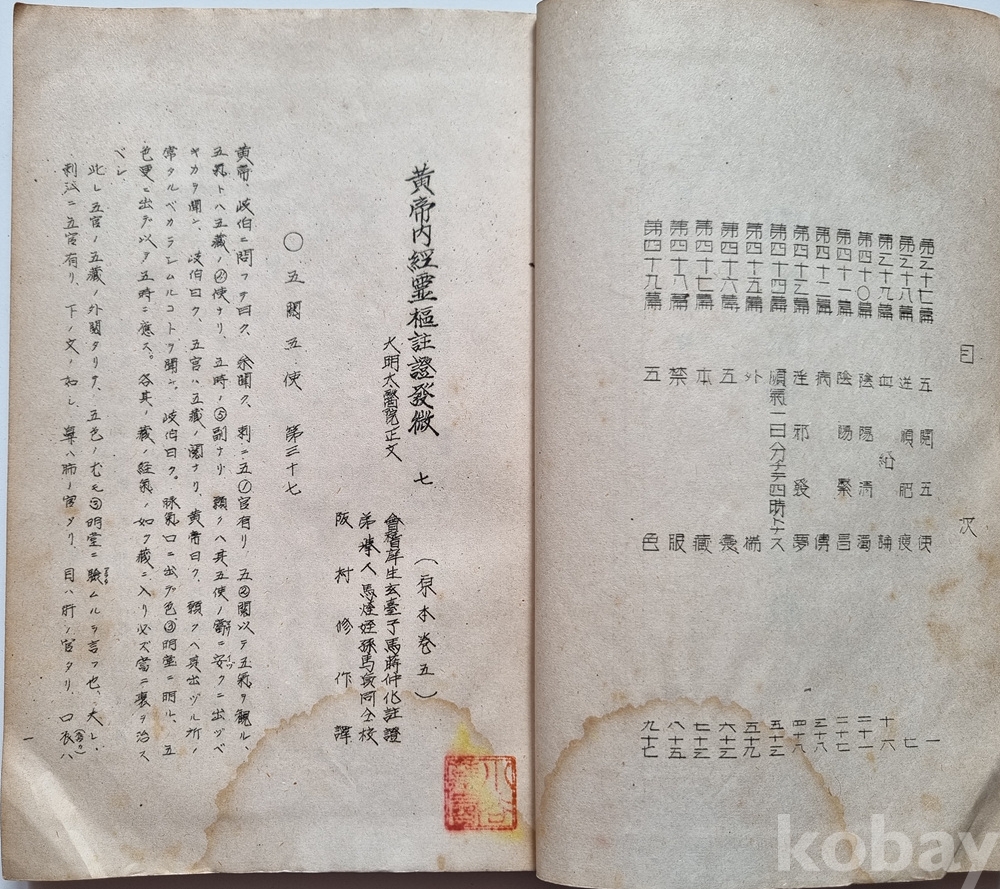 目次
第三十七篇 五閲五使 一
第三十八篇 逆順肥瘦 七
第三十九篇 血絡論 十六
第四十〇篇 陰陽清濁 二十一
第四十一篇 陰陽繋 二十七
第四十二篇 病傳 三十八
第四十三篇 淫邪發夢 四十八
第四十四篇 順氣一日分チテ四時トナス 五十三
第四十五篇 外揣 五十九
第四十六篇 五變 六十三
第四十七篇 本藏 七十三
第四十八篇 禁眼 八十五
第四十九篇 五色 九十七
黃帝內經靈樞註證發微 七 (原本卷五)
大明太醫院正文
會稽庠生玄臺子馬蒔仲化註證
阪村修作譯
〇五閲五使 第三十七
黃帝、岐伯ニ問フテ曰ク、余聞ク、刺ニ五①官有リ、五②閲以テ五氣ヲ觀ル、
五氣トハ五藏ノ②使ナリ、五時ノ⑤副ナリ、願クハ其五使ノ當ニ安クニ出ヅベ
キカヲ聞ン、岐伯曰ク、五官ハ五藏ノ閲ナリ、黃帝曰ク、願クハ其出ヅル所ノ
常タルベカラシムルコトヲ聞ン。岐伯曰ク。脉氣口ニ出デ色③明堂ニ明ル、五
色更ニ出デ以テ五時ニ應ス。各其ノ藏ノ經氣ノ如ク藏ニ入リ必ズ當ニ裏ヲ治ス
ベシ
此レ五官ノ五藏ノ外閲タリテ、五色ノ尤モ③明堂ニ驗ムルヲ言フ也、夫レ、
刺法ニ五官有リ、下ノ文ノ如シ、鼻ハ肺ノ官タリ、目ハ肝ノ官タリ、口ハ
一
kobay